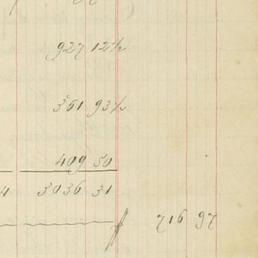 927 12½
361 93½
409 50
4 3036 31
716 97